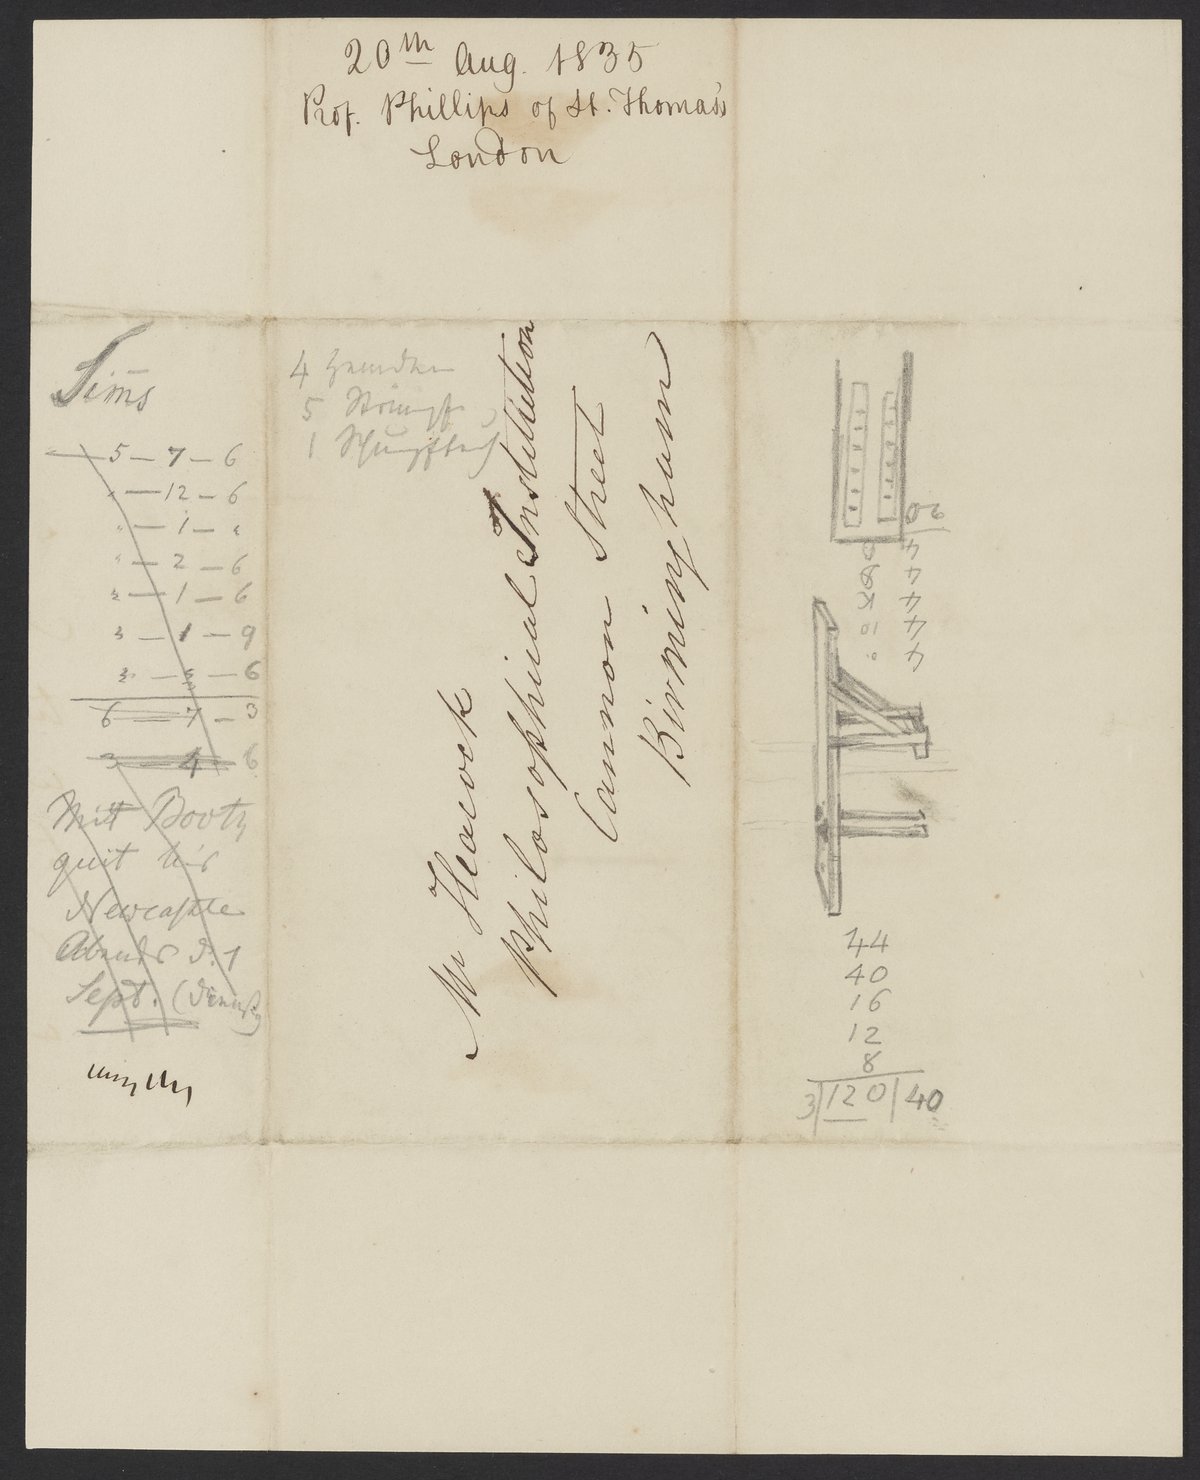 20th Aug. 1835
Prof. Phillips of St. Thomas's
London
Sims
5 – 7 – 6
" – 12 – 6
" – 1 – "
" – 2 – 6
" – 1 – 6
3 – 1 – 9
– 6
6 – 7 – 3
3 – 4 – 6
Mitt Booty
quit
Newcastle
Abends d. 1
Sept. (Dienstg
4 Hemden
5 Strümpfe
1
Mr Heacock
Philosophical Institution
Cannon Street
Birmingham
4
4
4
4
4
20
10
K
44
40
16
12
8
3|120|40